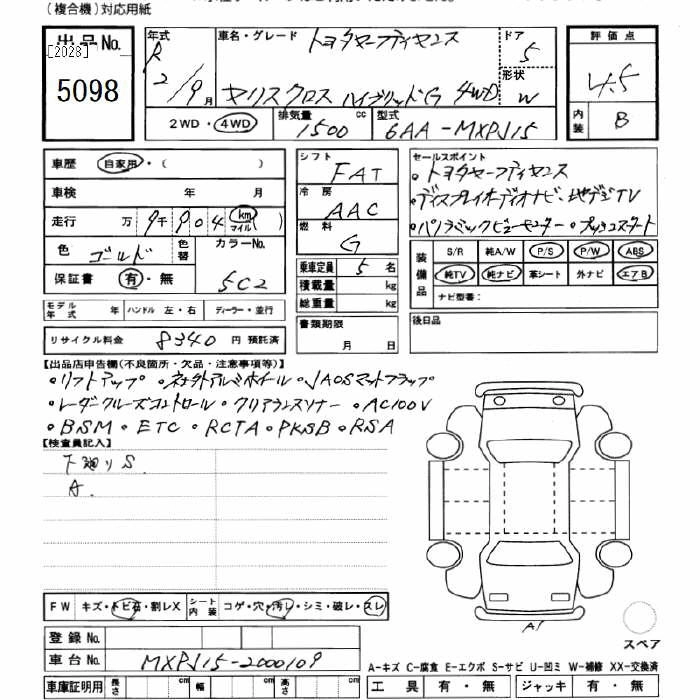 (複合機)対応用紙
出品No.
[2028]
5098
年式 R 2/9月
車名・グレード トヨタセーフティセンス
ヤリスクロス ハイブリッドG 4WD
ドア 5
形状 W
評価点 4.5
内装 B
2WD・4WD
排気量 1500 cc
型式 6AA-MXPJ15
車歴 自家用・( )
車検 年 月
走行 万 9千904 km マイル( )
色 ゴールド 色替
カラーNo. 5C2
保証書 有・無
モデル年式 ハンドル 左・右 ディーラー・並行
リサイクル料金 8340円 預託済
シフト FAT
冷房 AAC
燃料 G
乗車定員 5名
積載量 kg
総重量 kg
書類期限 月 日
セールスポイント
・トヨタセーフティセンス
・ディスプレイオーディオナビ・地デジTV
・パノラミックビューモニター・プッシュスタート
装備品 S/R 純A/W P/S P/W ABS
純TV 純ナビ 革シート 外ナビ エアB
ナビ型番:
後日品
【出品店申告欄(不良箇所・欠品・注意事項等)】
・リフトアップ ・社外アルミホイール ・JAOSマットフラップ
・レーダークルーズコントロール ・クリアランスソナー ・AC100V
・BSM ・ETC ・RCTA ・PKSB ・RSA
【検査員記入】
下廻りS
A
FW キズ・トビ石・割レX シート内装 コゲ・穴・汚レ・シミ・破レ・スレ
登録No.
車台No. MXPJ15-2000109
車庫証明用 長さ cm 幅 cm 高さ cm
A1
スペア
A-キズ C-腐食 E-エクボ S-サビ U-凹ミ W-補修 XX-交換済
工具 有・無 ジャッキ 有・無